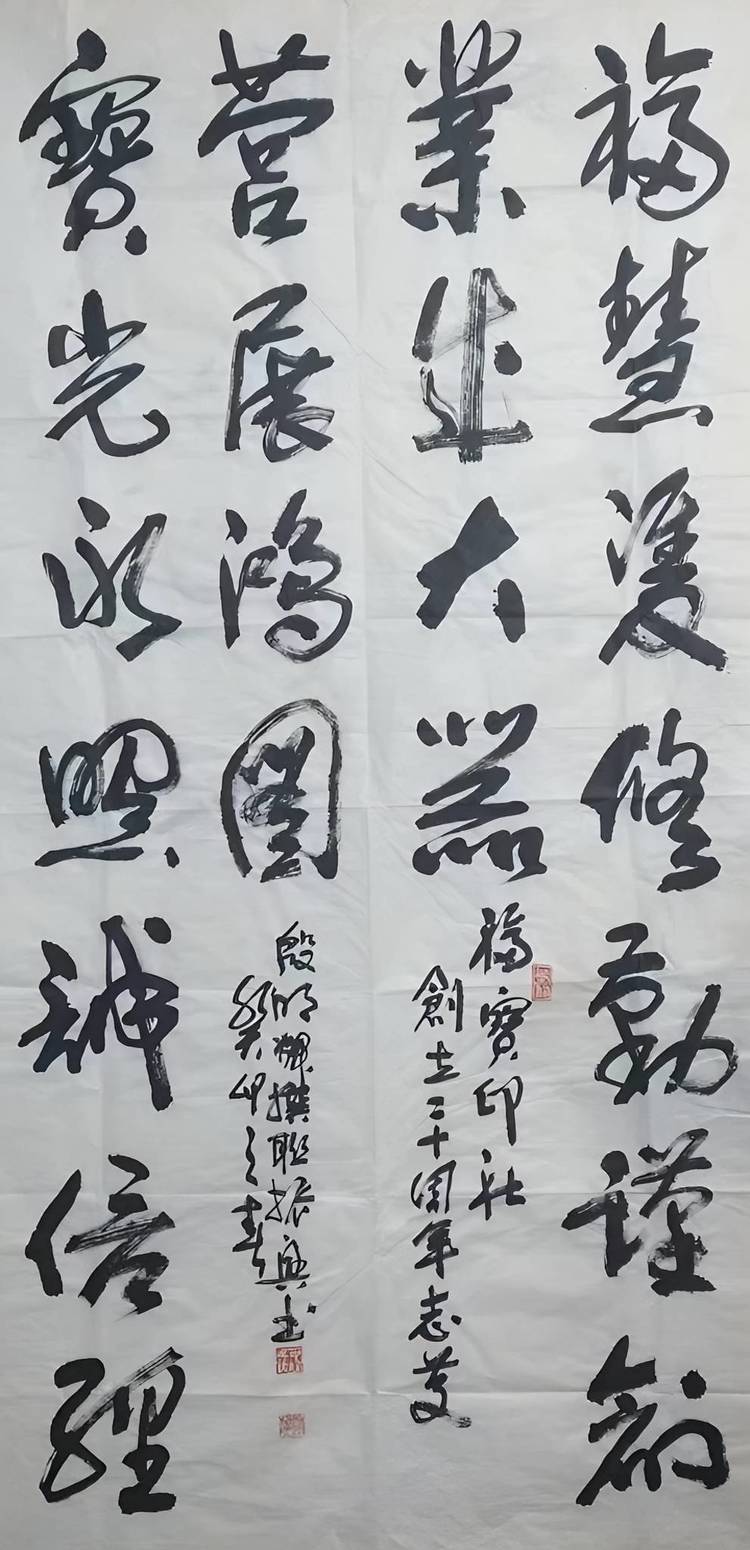 福慧雙修勤謹創
業大器
福寶印社
創立二十周年志慶
寶光永照誠信經
營展鴻圖
殷明輝撰聯振興書
癸卯之春